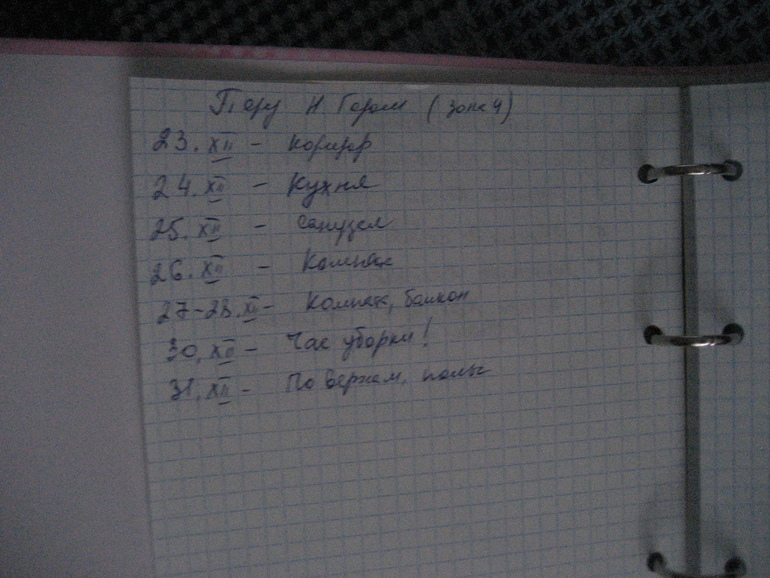 Перед Н. Годом (зона 4)
23. XII - коридор
24. XII - Кухня
25. XII - санузел
26. XII - Комната
27-28. XII - Комната, балкон
30. XII - Час уборки!
31. XII - По верхам, полы